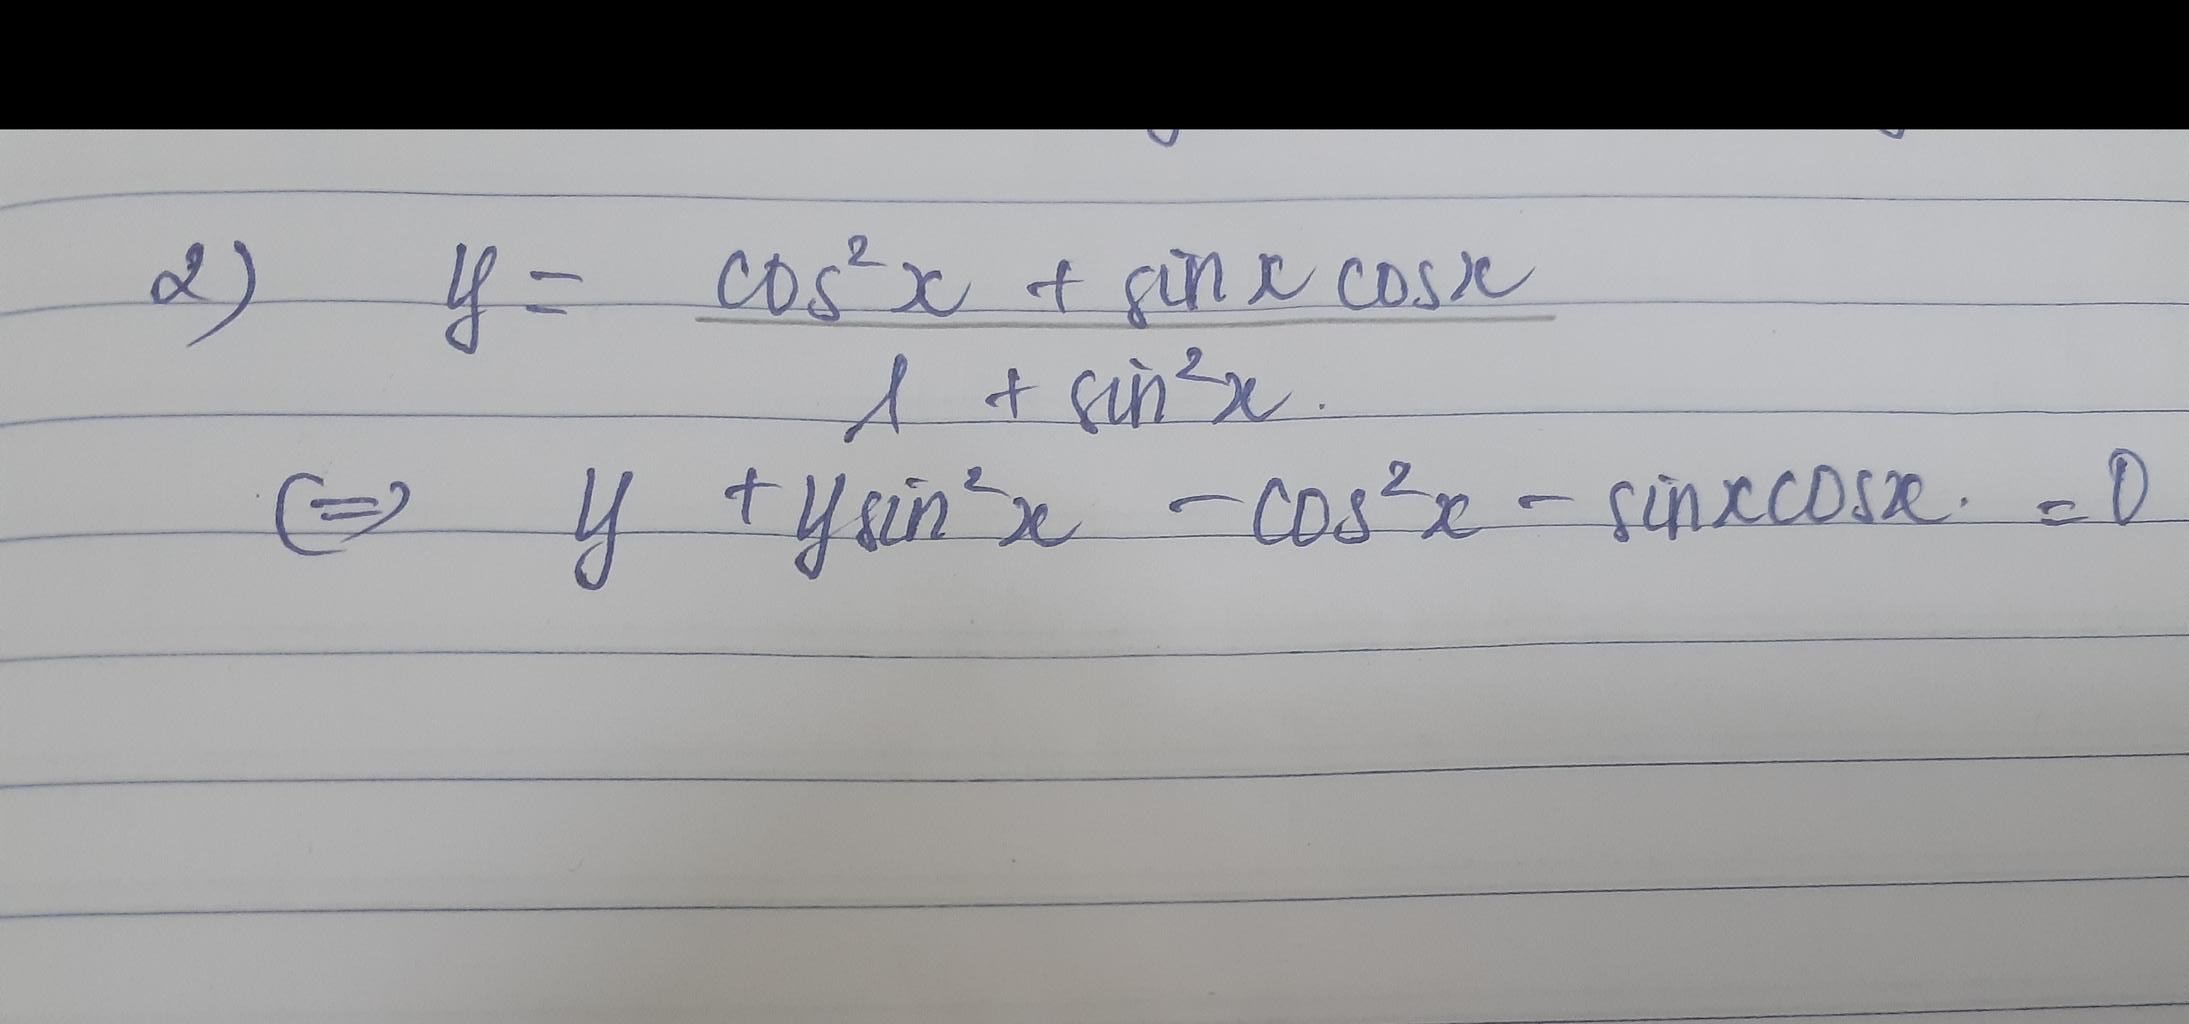 2) y = cos²x + sinx cosx
1 + sin²x.
(=) y + ysin²x - cos²x - sinxcosx. = 0